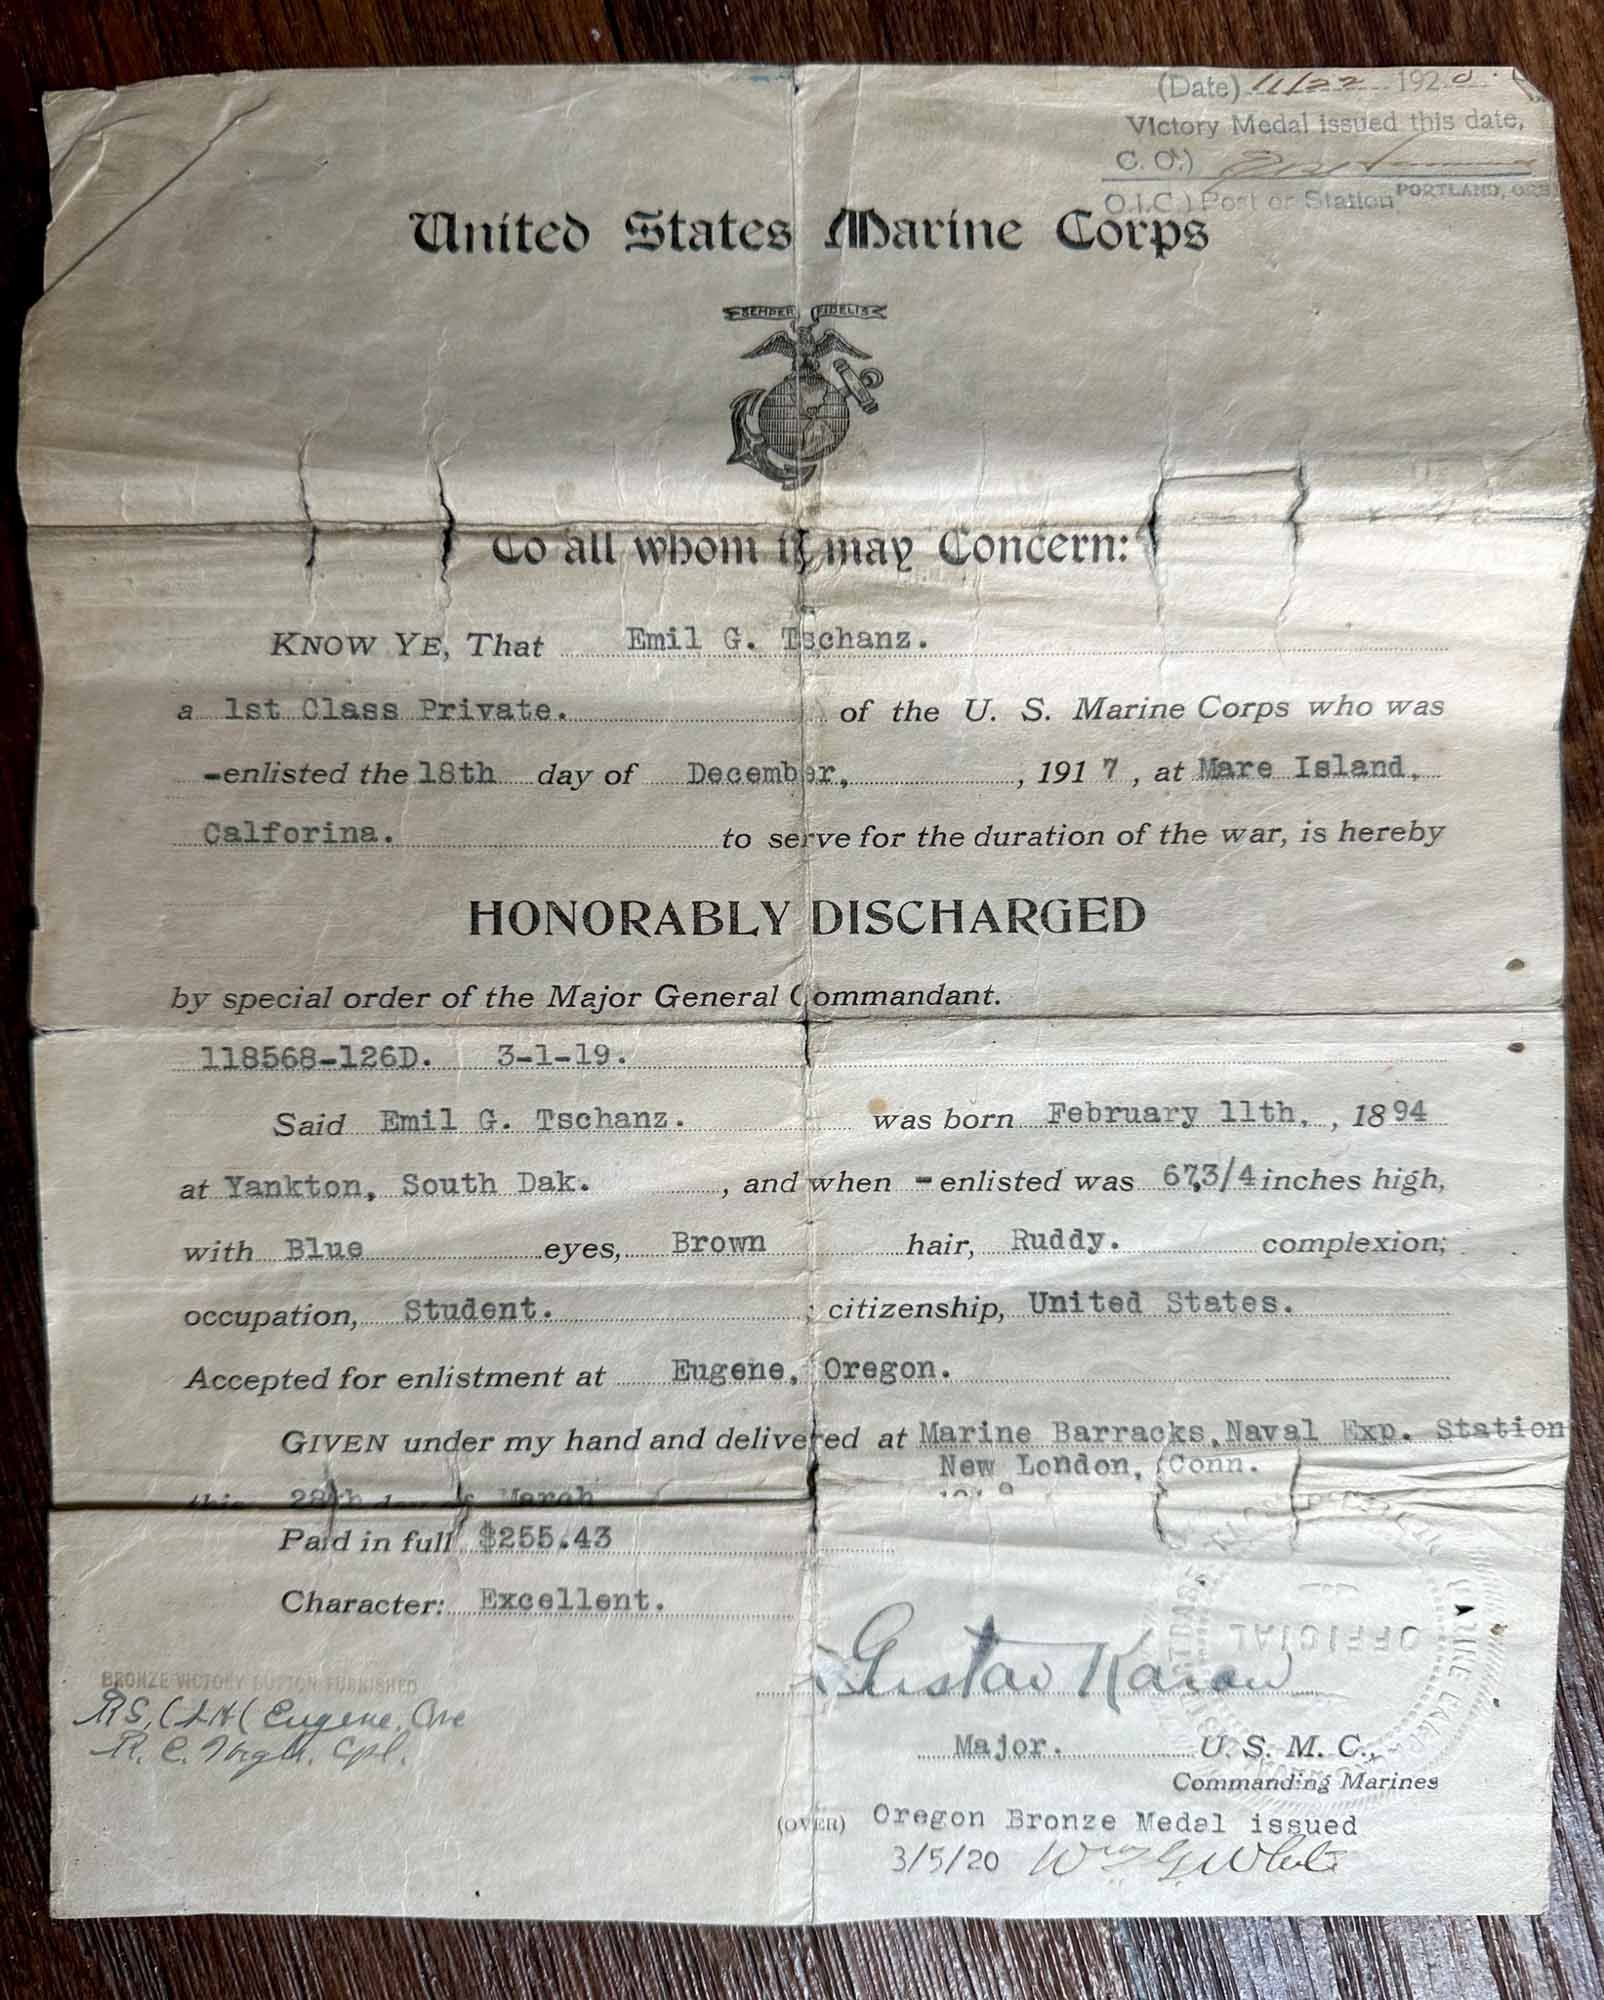 (Date) 11/22 1920.
Victory Medal issued this date,
C. O.)
O.I.C.) Post or Station PORTLAND, ORE
United States Marine Corps
SEMPER FIDELIS
To all whom it may Concern:
KNOW YE, That Emil G. Tschanz.
a 1st Class Private. of the U. S. Marine Corps who was
-enlisted the 18th day of December, , 1917, at Mare Island,
Calforina. to serve for the duration of the war, is hereby
HONORABLY DISCHARGED
by special order of the Major General Commandant.
118568-126D. 3-1-19.
Said Emil G. Tschanz. was born February 11th, , 1894
at Yankton, South Dak. , and when -enlisted was 67,3/4 inches high,
with Blue eyes, Brown hair, Ruddy. complexion;
occupation, Student. ; citizenship, United States.
Accepted for enlistment at Eugene, Oregon.
GIVEN under my hand and delivered at Marine Barracks, Naval Exp. Station
New London, Conn.
this 28th day of March 1919
Paid in full $255.43
Character: Excellent.
OFFICIAL
Gustav Karow
BRONZE VICTORY BUTTON FURNISHED
Eugene, Ore
R. C. Cpl.
Major. U. S. M. C.,
Commanding Marines
(OVER) Oregon Bronze Medal issued
3/5/20 Wm G White